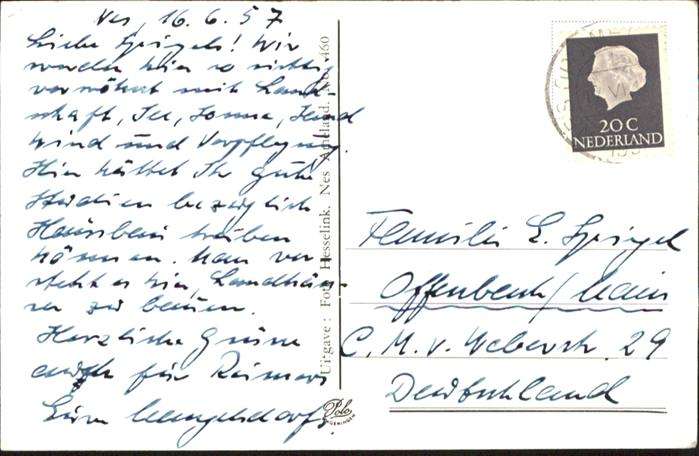 Nes, 16. 6. 57
Liebe Spiegels! Wir
werden hier so richtig
verwöhnt mit Land-
schaft, See, Sonne,
Wind und Verpflegung.
Hier hättet Ihr gute
Studien bezüglich
Hausbau treiben
können. Man ver-
steht es hier, Landhäu-
ser zu bauen.
Herzliche Grüsse
auch für Reimar
Eure Mangelsdorfs.
Uitgave: Foto Hesselink. Nes Ameland. No. 460
Polo
20 C
NEDERLAND
Familie E. Spiegel
Offenbach/Main
C. M. v. Weberstr. 29
Deutschland